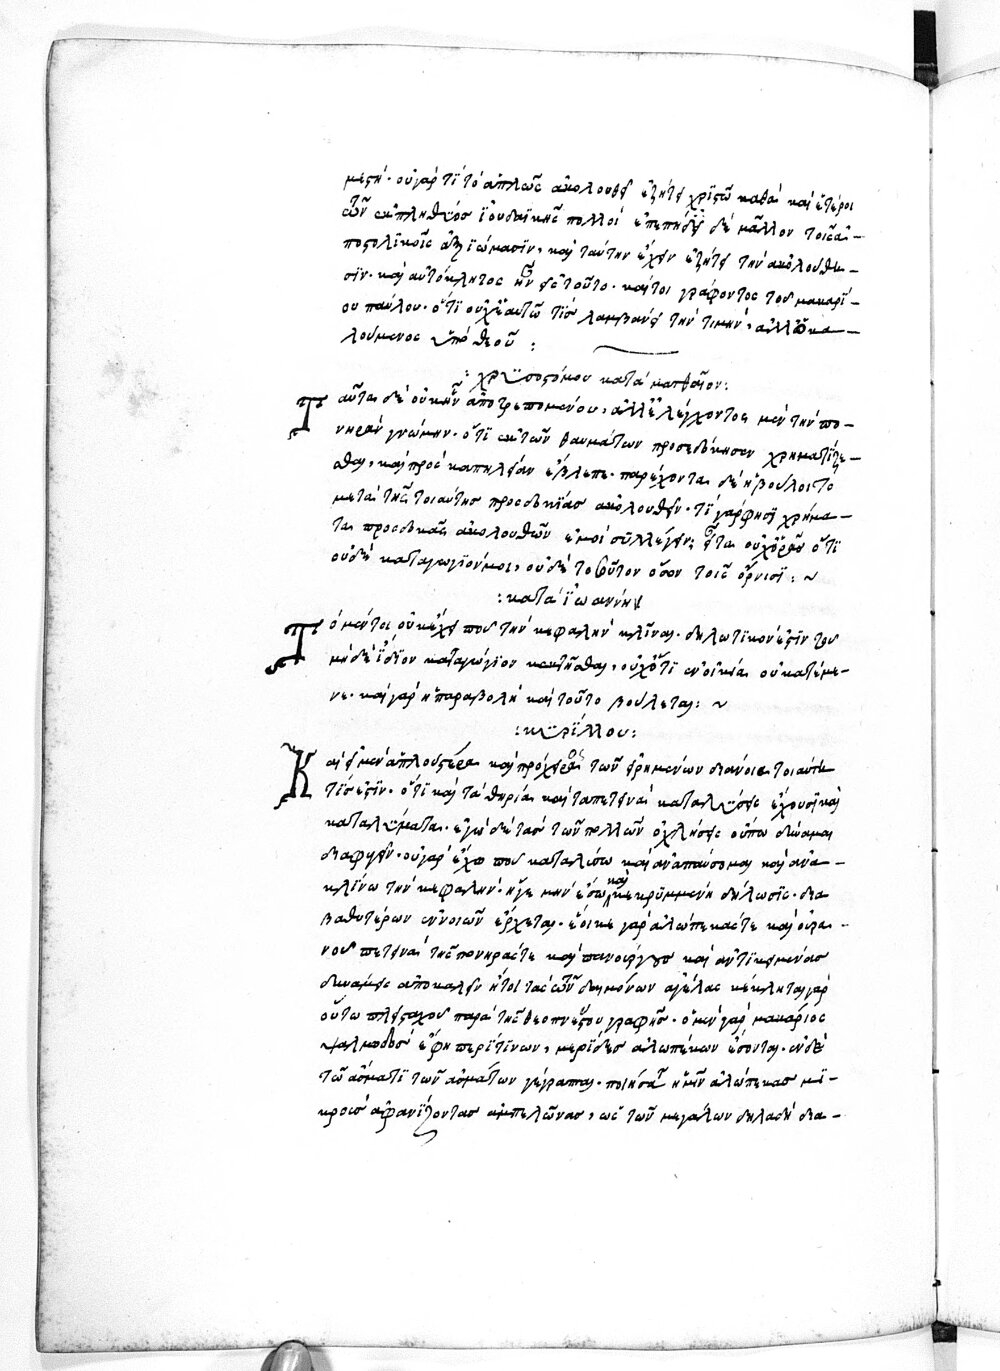 μεστή· οὐ γάρ τι τὸ ἁπλῶς ἀκολουθεῖν ἐζήτει χριστῶ καθὰ καὶ ἕτεροι
τῶν ἐκ πληθύος ἰουδαϊκῆς πολλοί ἐπεπήδα δὲ μᾶλλον τοῖς ἀ-
ποστολικοῖς ἀξιώμασιν, καὶ ταύτην ἔχειν ἐζήτει τὴν ἀκολούθη-
σιν· καὶ αὐτόκλητος ἦν εἰς τοῦτο· καίτοι γράφοντος τοῦ μακαρί-
ου παύλου· ὅτι οὐχ ἑαυτῶ τίς λαμβάνει τὴν τιμήν, ἀλλ' ὁ κα-
λούμενος ὑπὸ θεοῦ :
: χρυσοστόμου κατὰ ματθαῖον :
Ταῦτα δὲ οὐκ ἦν ἀποτρεπομένου, ἀλλ' ἐλέγχοντος μὲν τὴν πο-
νηρὰν γνώμην· ὅτι ἐκ τῶν θαυμάτων προσεδόκησεν χρηματίζε-
σθαι, καὶ πρὸς καπηλείαν ἔβλεπε· παρέχοντα δὲ εἰ βούλοιτο
μετὰ τῆς τοιαύτης προσδοκίας ἀκολουθεῖν· τί γάρ φησι χρήμα-
τα προσδοκᾶς ἀκολουθῶν ἐμοὶ συλλέγειν; εἶτα οὐχ ὁρᾶς ὅτι
οὐδὲ καταγώγιόν μοι, οὐδὲ τοσοῦτον ὅσον τοῖς ὄρνισι : ~
: κατὰ ἰωάννην
Τὸ μέντοι οὐκ ἔχει ποῦ τὴν κεφαλὴν κλῖναι· δηλωτικόν ἐστιν τοῦ
μηδὲ ἴδιον καταγώγιον κεκτῆσθαι, οὐχ ὅτι ἐν οἰκία οὐ κατέμε-
νε· καὶ γὰρ ἡ παραβολὴ καὶ τοῦτο βούλεται : ~
: κυρίλλου :
Καὶ ἡ μὲν ἁπλουστέρα καὶ πρόχειρος τῶν εἰρημένων διάνοια τοιαύτη
τίς ἐστιν· ὅτι καὶ τὰ θηρία καὶ τὰ πετεινὰ καταλύσεις ἔχουσι καὶ
καταλύματα· ἐγὼ δὲ τὰς τῶν πολλῶν ὀχλήσεις οὔπω δύναμαι
διαφυγεῖν· οὐ γὰρ ἔχω ποῦ καταλύσω καὶ ἀναπαύσομαι καὶ ἀνα-
κλίνω τὴν κεφαλήν· ἥ γε μὴν ἔσω καὶ κεκρυμμένη δήλωσις· διὰ
βαθυτέρων ἐννοιῶν ἔρχεται· ἔοικε γὰρ ἀλώπεκάς τε καὶ οὐρα-
νοῦ πετεινὰ τὰς πονηράς τε καὶ πανούργους καὶ ἀντικειμένας
δυνάμεις ἀποκαλεῖν ἤτοι τὰς τῶν δαιμόνων ἀγέλας κέκληται γὰρ
οὕτω πλεισταχοῦ παρὰ τῆς θεοπνεύστου γραφῆς· ὁ μὲν γὰρ μακάριος
ψαλμωδὸς ἔφη περί τινων, μερίδες ἀλωπέκων ἔσονται· ἐν δὲ
τῶ ἄσματι τῶν ἀσμάτων γέγραπται· πιάσατε ἡμῖν ἀλώπεκας μι-
κροὺς ἀφανίζοντας ἀμπελῶνας, ὡς τῶν μεγάλων δηλαδὴ δια-